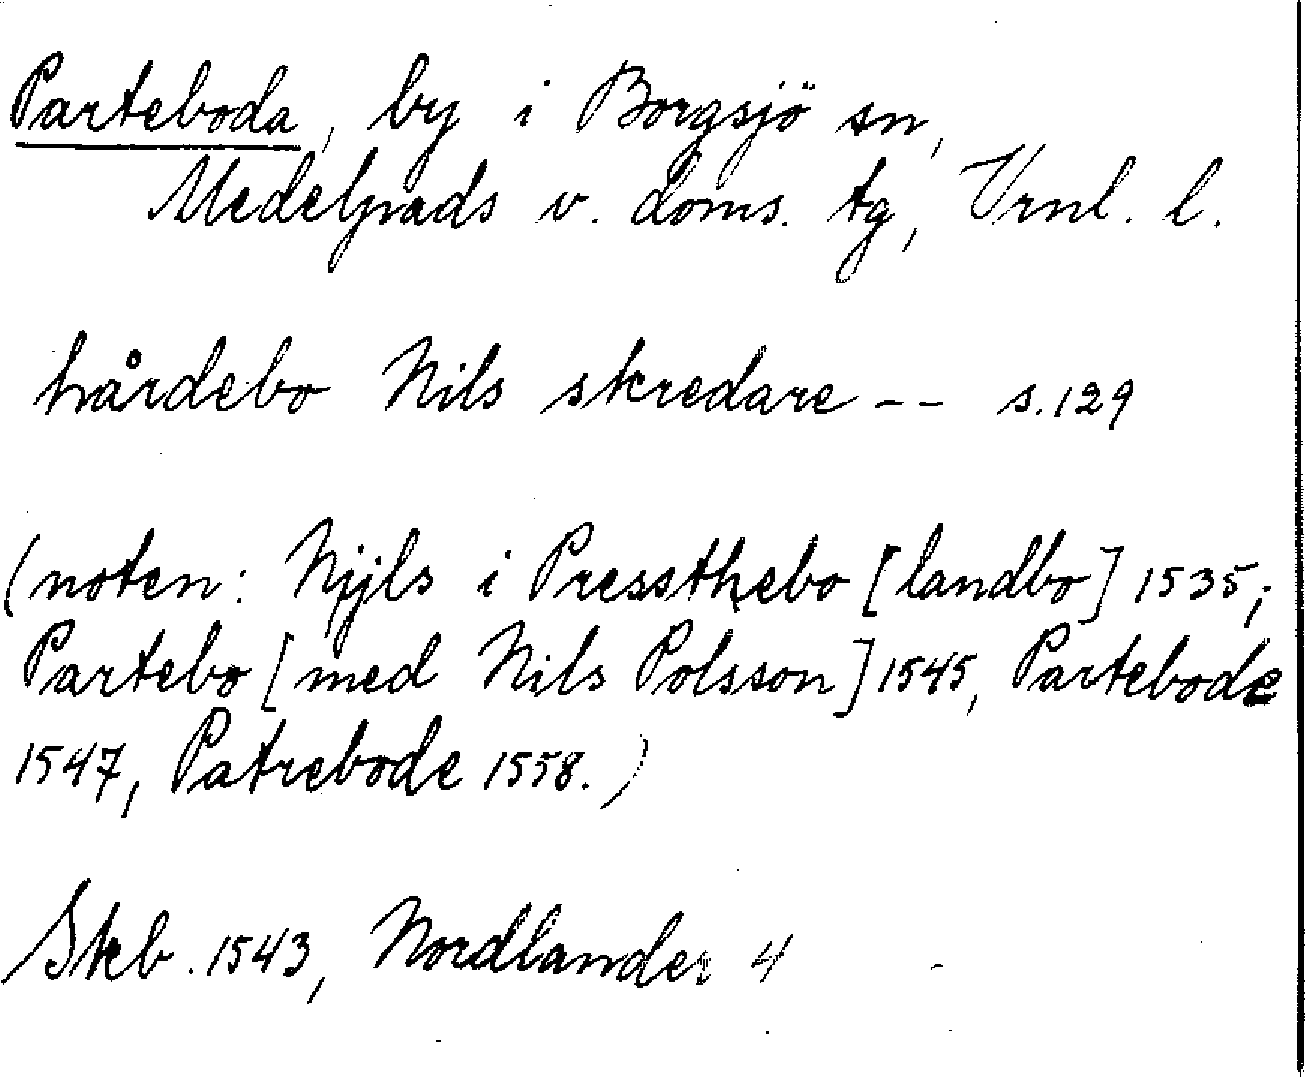 Parteboda, by i Borgsjö sn,
Medelpads v. doms. tg, Vrnl. l.
hårdebo Nils skredare -- s. 129
(noten: Nijls i Pressthebo [landbo] 1535;
Partebo [med Nils Polsson] 1545, Partebode
1547, Patrebode 1558.)
Skb. 1543, Nordlander 4